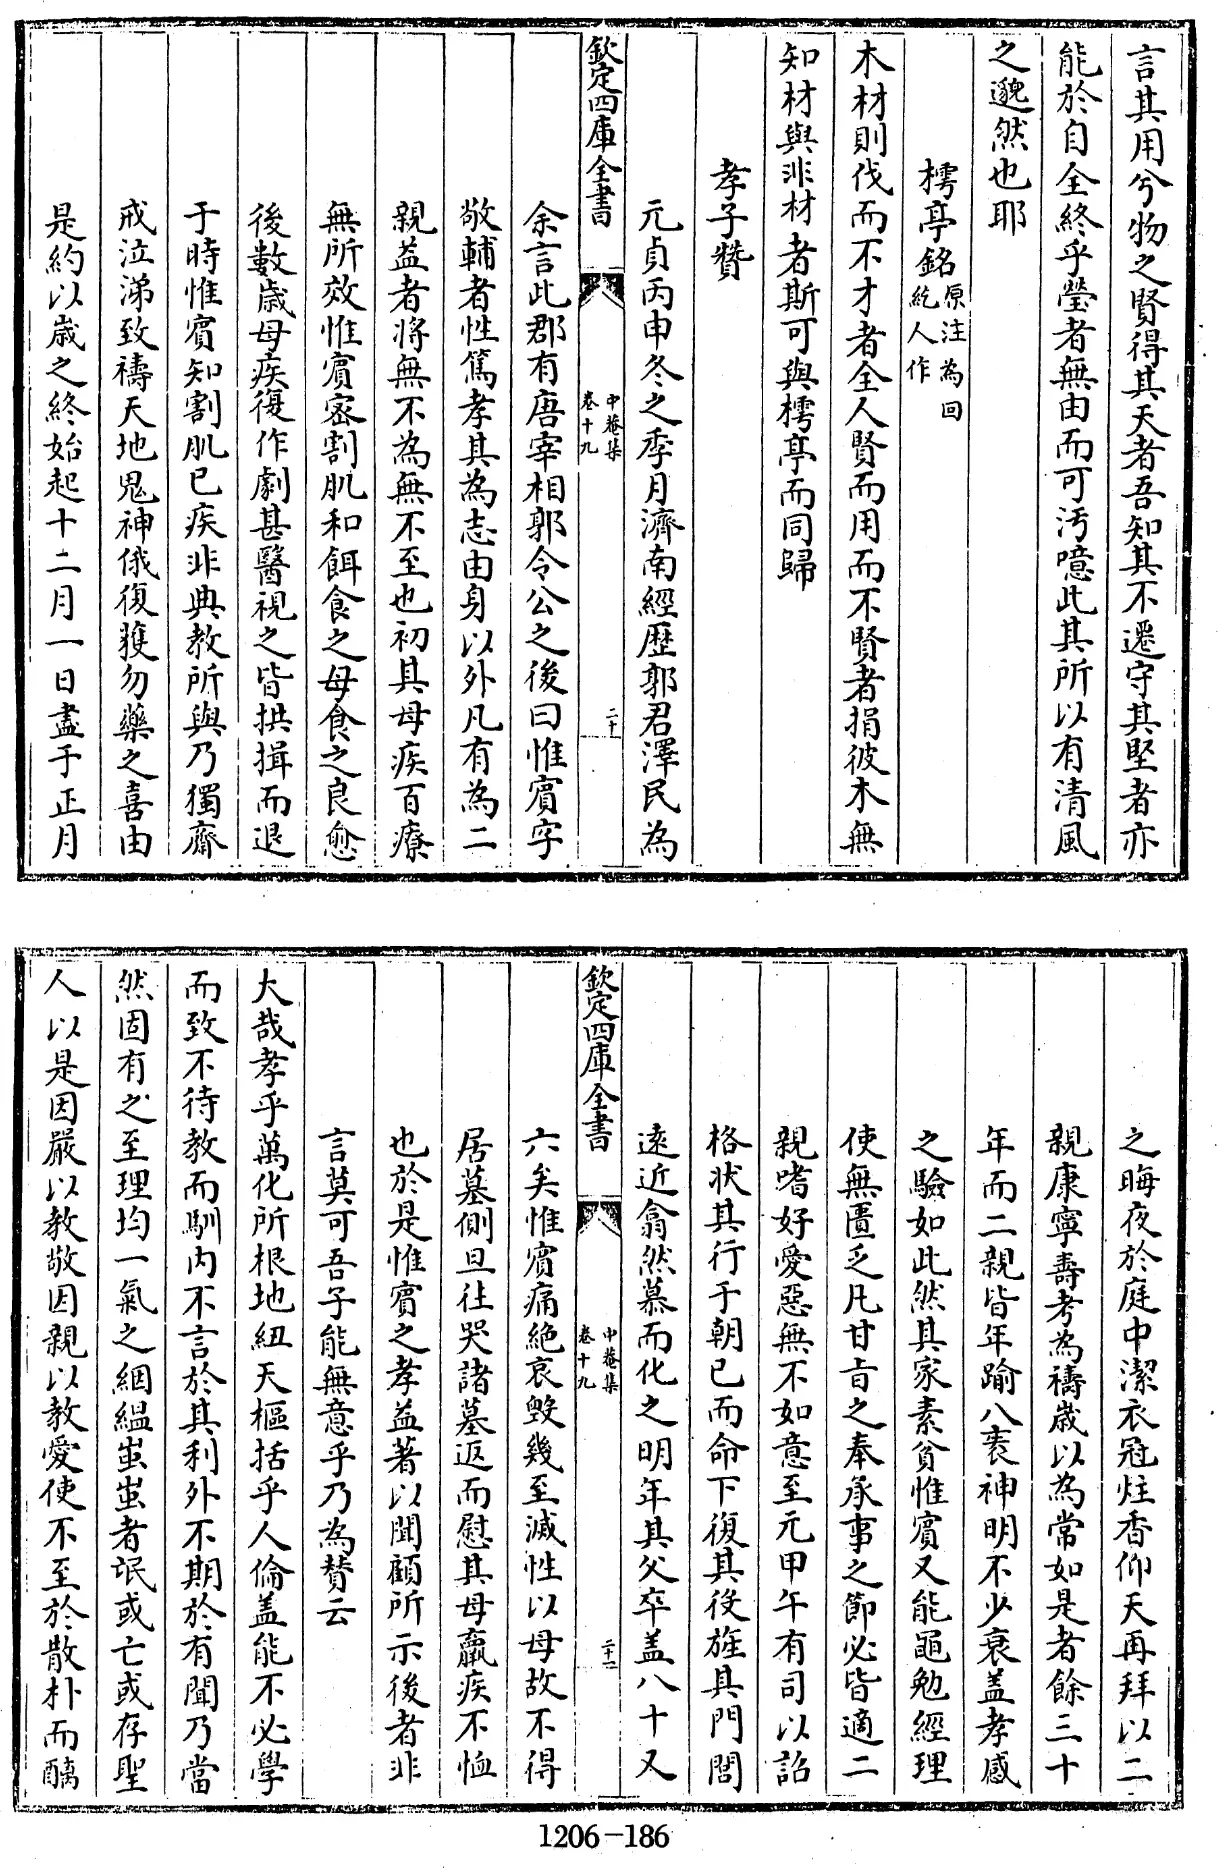 言其用兮物之賢得其天者吾知其不遷守其堅者亦
能於自全終乎瑩者無由而可汚噫此其所以有清風
之邈然也耶
樗亭銘原注為回紇人作
木材則伐而不才者全人賢而用而不賢者捐彼木無
知材與非材者斯可與樗亭而同歸
孝子贊
元貞丙申冬之季月濟南經歴郭君澤民為
欽定四庫全書
中菴集
卷十九
二十
余言此郡有唐宰相郭令公之後曰惟賔字
敬輔者性篤孝其為志由身以外凡有為二
親益者將無不為無不至也初其母疾百療
無所效惟賔宻割肌和餌食之母食之良愈
後數歳母疾復作劇甚醫視之皆拱揖而退
于時惟賔知割肌已疾非典教所與乃獨齋
戒泣涕致禱天地鬼神俄復獲勿藥之喜由
是約以歳之終始起十二月一日盡于正月
之晦夜於庭中潔衣冠炷香仰天再拜以二
親康寧壽考為禱歳以為常如是者餘三十
年而二親皆年踰八袠神明不少衰盖孝感
之驗如此然其家素貧惟賔又能黽勉經理
使無匱乏凡甘㫖之奉承事之節必皆適二
親嗜好愛惡無不如意至元甲午有司以詔
格狀其行于朝已而命下復其役旌其門閭
逺近翕然慕而化之明年其父卒盖八十又
欽定四庫全書
中菴集
卷十九
二十一
六矣惟賔痛絶哀毁幾至滅性以母故不得
居墓側旦往哭諸墓返而慰其母羸疾不恤
也於是惟賔之孝益著以聞顧所示後者非
言莫可吾子能無意乎乃為贊云
大哉孝乎萬化所根地紐天樞括乎人倫盖能不必學
而致不待教而馴内不言於其利外不期於有聞乃當
然固有之至理均一氣之絪緼蚩蚩者氓或亡或存聖
人以是因嚴以教敬因親以教愛使不至於散朴而醨
1206-186